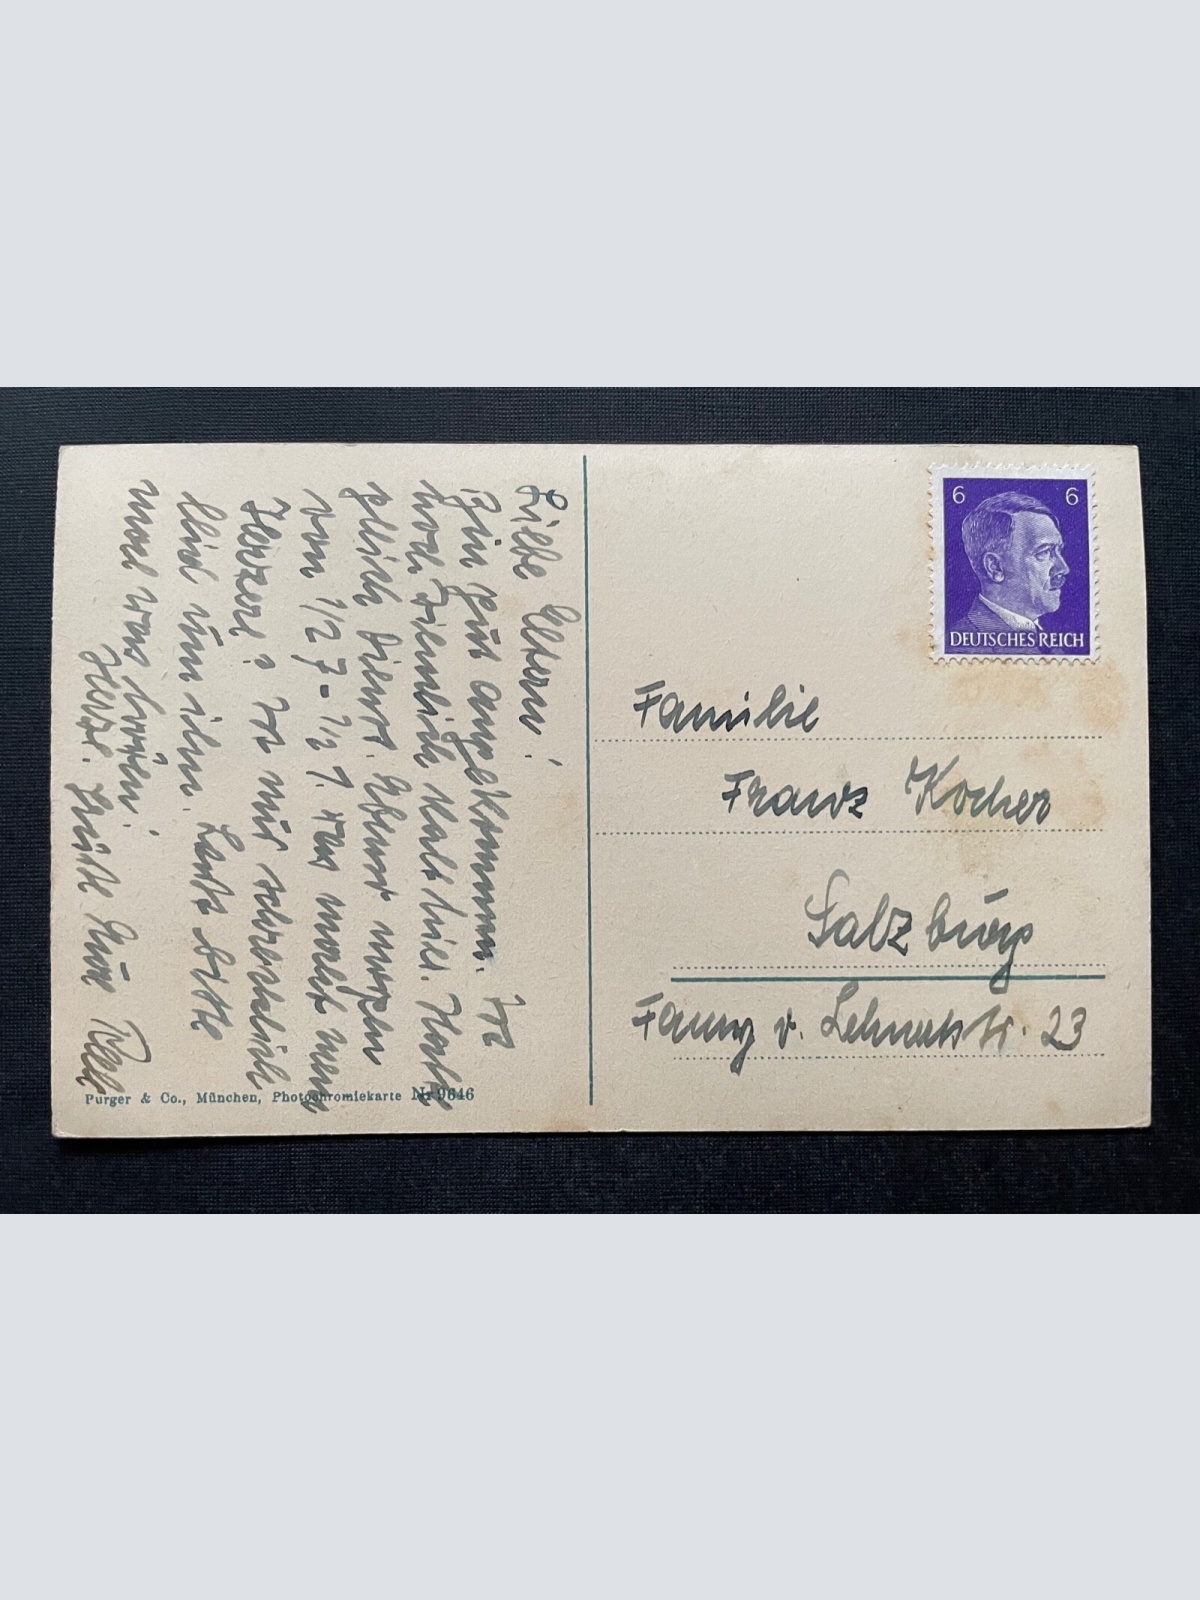 Liebe Eltern!
Bin gut angekommen. Ist
noch ziemlich kalt hier. Habe
gleich Dienst. Ebenso morgen
von 1/2 7 - 1/2 1. was macht mein
Herzerl? Ist mir schrecklich
leid um ihn. Laßt bitte
mal was hören!
Herzl. Grüße Eure
6 6
DEUTSCHES REICH
Familie
Franz Kocher
Salzburg
Fanny v. Lehnertstr. 23
Purger & Co., München, Photochromiekarte Nr. 9646